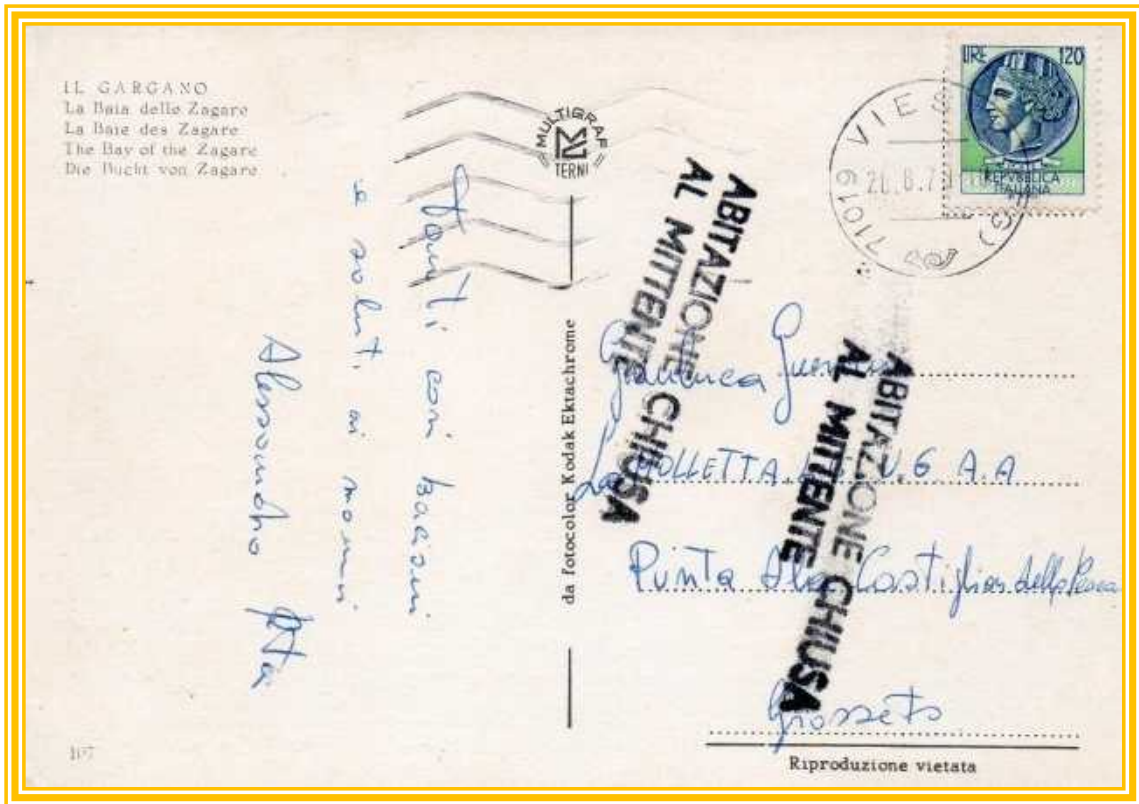 IL GARGANO
La Baia delle Zagare
La Baie des Zagare
The Bay of the Zagare
Die Bucht von Zagare
MULTIGRAF
TERNI
LIRE 120
REPVBBLICA
ITALIANA
71019 VIES
Tanti cari bacioni
e saluti ai nonni
Alessandro
da fotocolor Kodak Ektachrome
ABITAZIONE CHIUSA
AL MITTENTE
ABITAZIONE CHIUSA
AL MITTENTE
Gianluca
N.6 A.A
Punta Ala Castiglion della Pescaia
Grosseto
107
Riproduzione vietata